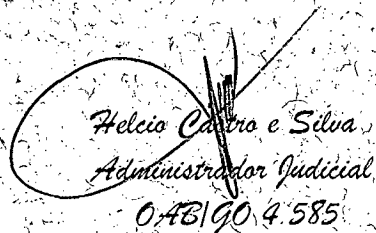 Helcio Castro e Silva
Administrador Judicial
OAB|GO 4.585